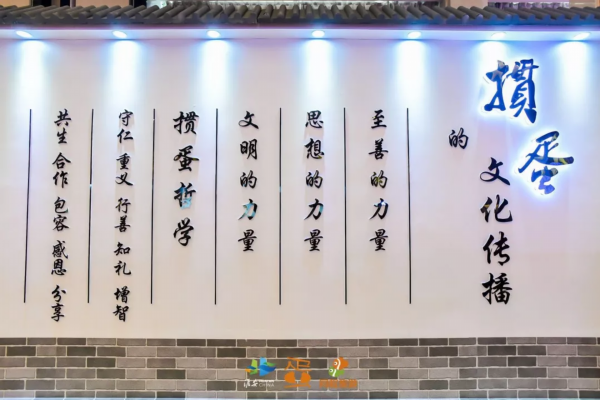 掼蛋
的
文化传播
至善的力量
思想的力量
文明的力量
掼蛋哲学
守仁 重义 行善 知礼 增智
共生 合作 包容 感恩 分享
淮安